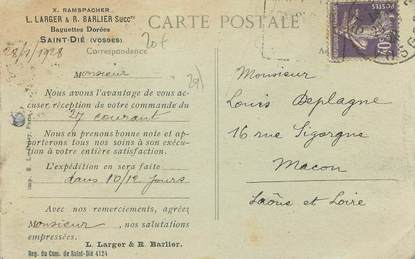 X. RAMSPACHER
L. LARGER & R. BARLIER Succrs
Baguettes Dorées
SAINT-DIÉ (VOSGES)
CARTE POSTALE
Correspondence
28/7/1928
20f
Monsieur
Nous avons l'avantage de vous ac-
cuser réception de votre commande du
27 courant
Nous en prenons bonne note et ap-
porterons tous nos soins à son exécu-
tion à votre entière satisfaction.
L'expédition en sera faite
dans 10/12 jours
Avec nos remerciements, agréez
Monsieur, nos salutations
empressées.
L. Larger & R. Barlier.
Reg. du Com. de Saint-Dié 4124
Monsieur
Louis Deplagne
16 rue Sigorgne
Macon
Saône et Loire